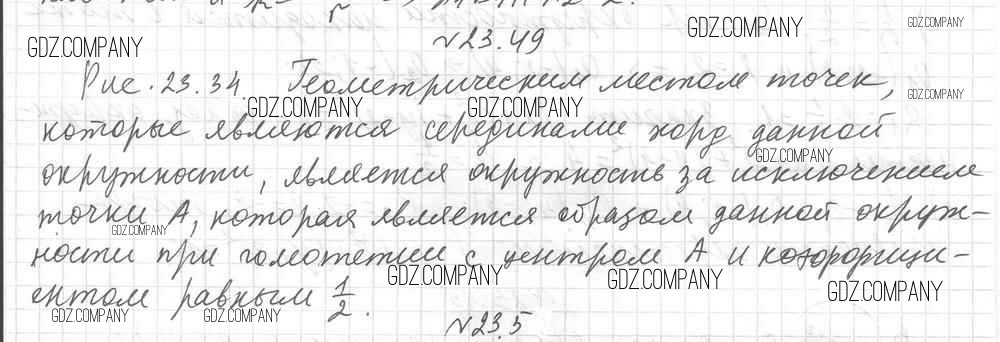 №23.49
Рис. 23.34 Геометрическим местом точек,
которые являются серединами хорд данной
окружности, является окружность за исключением
точки А, которая является образом данной окруж-
ности при гомотетии с центром А и коэффици-
ентом равным 1/2.
№23.5
GDZ.COMPANY
GDZ.COMPANY
GDZ.COMPANY
GDZ.COMPANY
GDZ.COMPANY
GDZ.COMPANY
GDZ.COMPANY
GDZ.COMPANY
GDZ.COMPANY
GDZ.COMPANY
GDZ.COMPANY
GDZ.COMPANY
GDZ.COMPANY